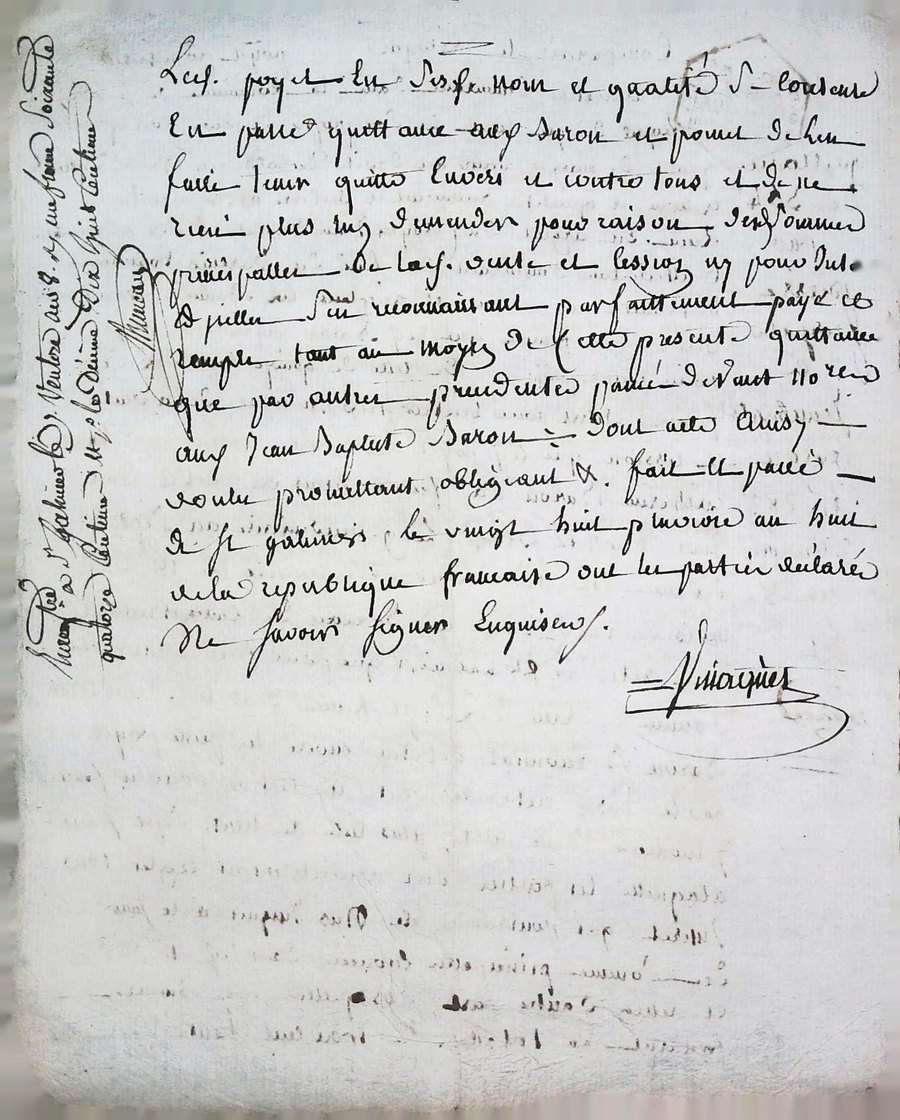 Led. poyet En Sesd. nom et qualité S- Contente
En passé quittance aud Baron et promet de len
faire tenir quitte Envers et contre tous et de ne
rien plus luy demender pour raison desd Sommes
principalles de lad. vente et Cession ny pour Int.
d'jcelles Sen reconnaissant parfaittement payé et
remply tant au moyen de Cette presente quittance
que par autres precedentes passée devant Nore
aud Jean Baptiste Baron dont acte Ainsy
voulu promettant obligeant &. fait Et passé
à St galmier le vingt huit pluviose an huit
de la republique francaise ont les parties déclaré
Ne Savoir Signer Enquises.
Enregistré à St Galmier le Ventose an 8 Reçu un franc Soixante
quatorze Centimes Et pr le Dixieme Dix Sept Centimes